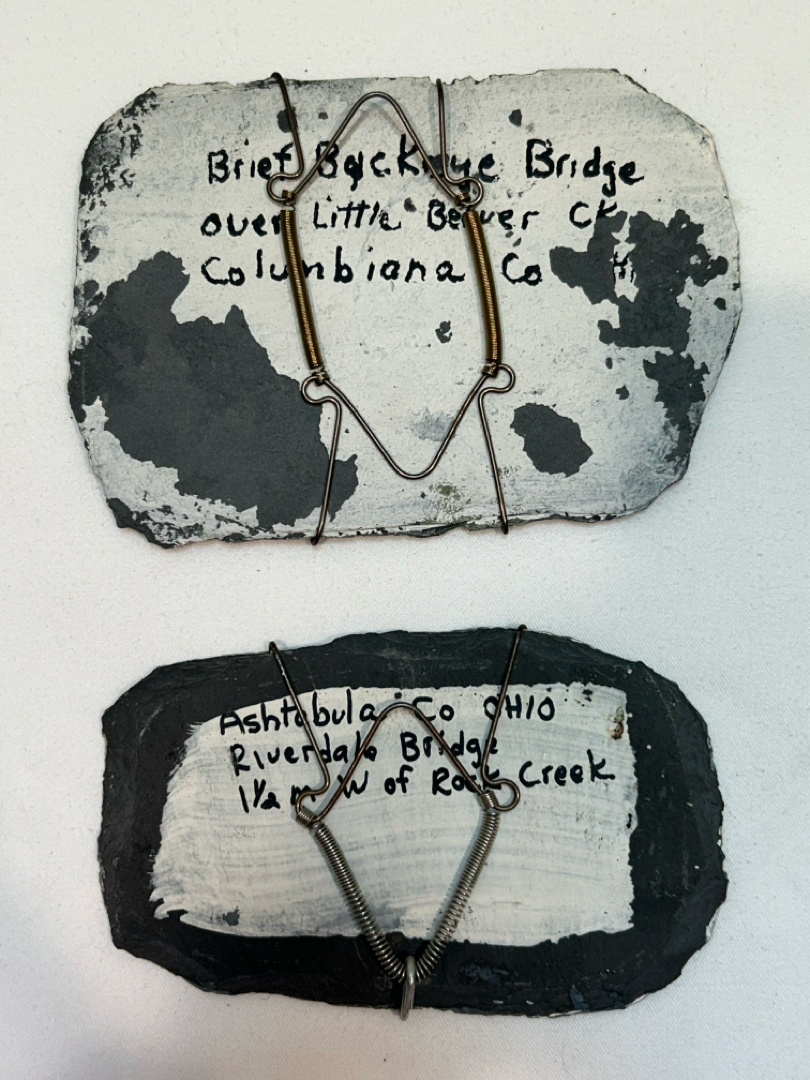 Brief Backeye Bridge
over Little Beaver CK
Columbiana Co
Ashtabula Co OHIO
Riverdale Bridge
1½ m W of Rock Creek